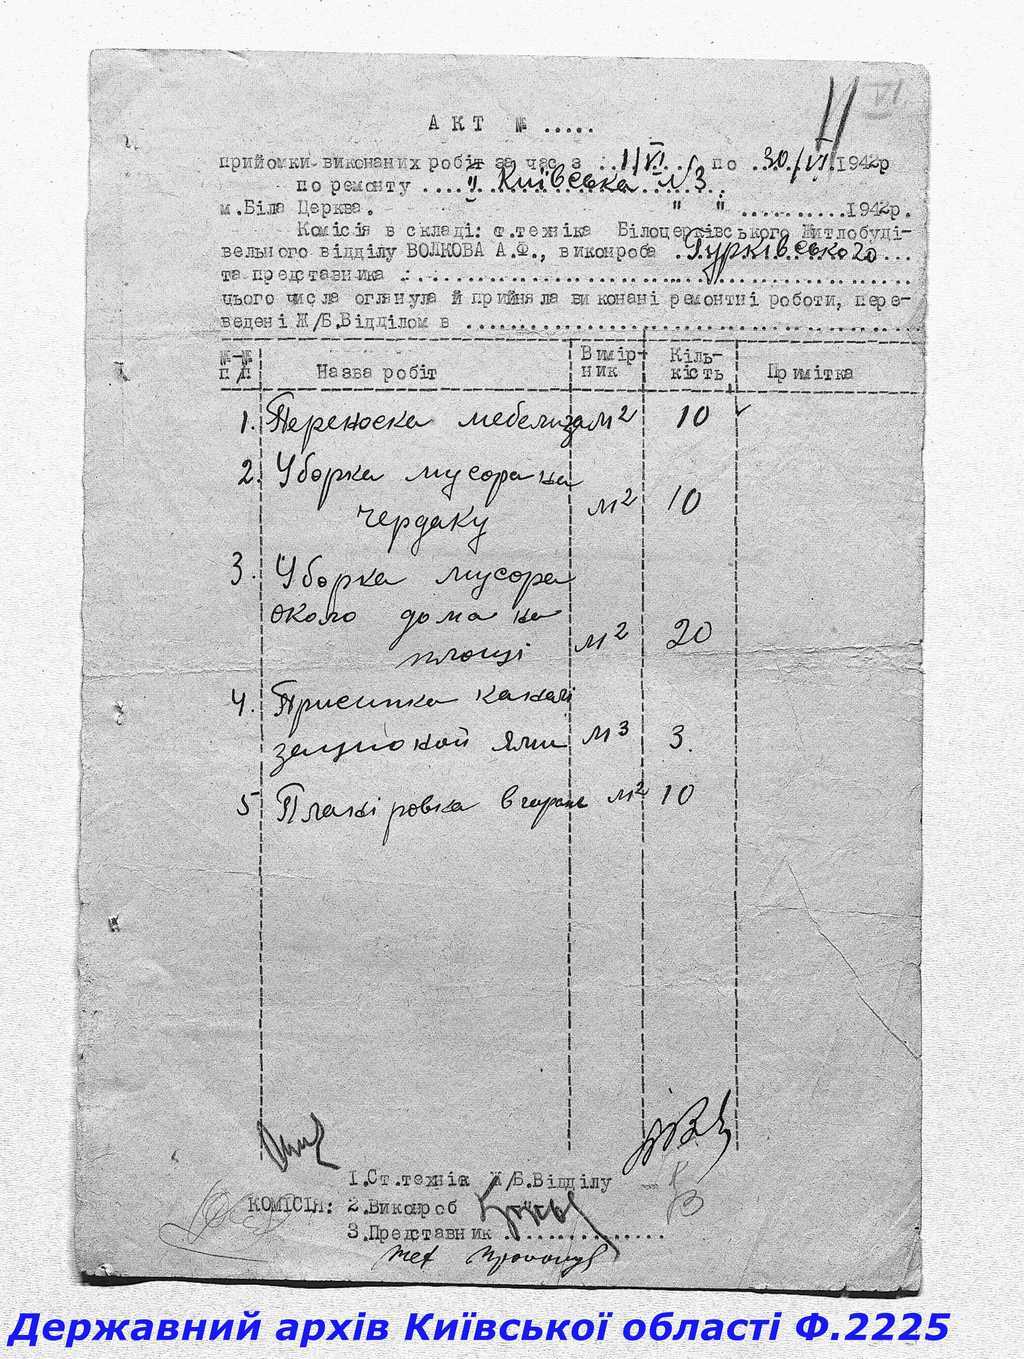 VI
АКТ № .....
прийомки виконаних робіт за час з ..1/VI... по .30/VI.1942р
по ремонту ....ІІ Київська №3.
м.Біла Церква. " " ..........1942р.
Комісія в складі: ст.техніка Білоцерківського Житлобуді-
вельного відділу ВОЛКОВА А.Ф., виконроба .Гурківського...
та представника :..............................................
цього числа оглянула й прийняла виконані ремонтні роботи, пере-
ведені Ж/Б.Відділом в ..........................................
№-№ п/п Назва робіт Вимір-ник Кіль-кість Примітка
1. Переноска мебели за м2 10
2. Уборка мусора на
чердаку м2 10
3. Уборка мусора
около дома на
площі м2 20
4. Присипка
ями м3 3.
5 Планіровка м2 10
1.Ст.технік Ж/Б.Відділу
КОМІСІЯ: 2.Виконроб
3.Представник ..............
тех
Державний архів Київської області Ф.2225